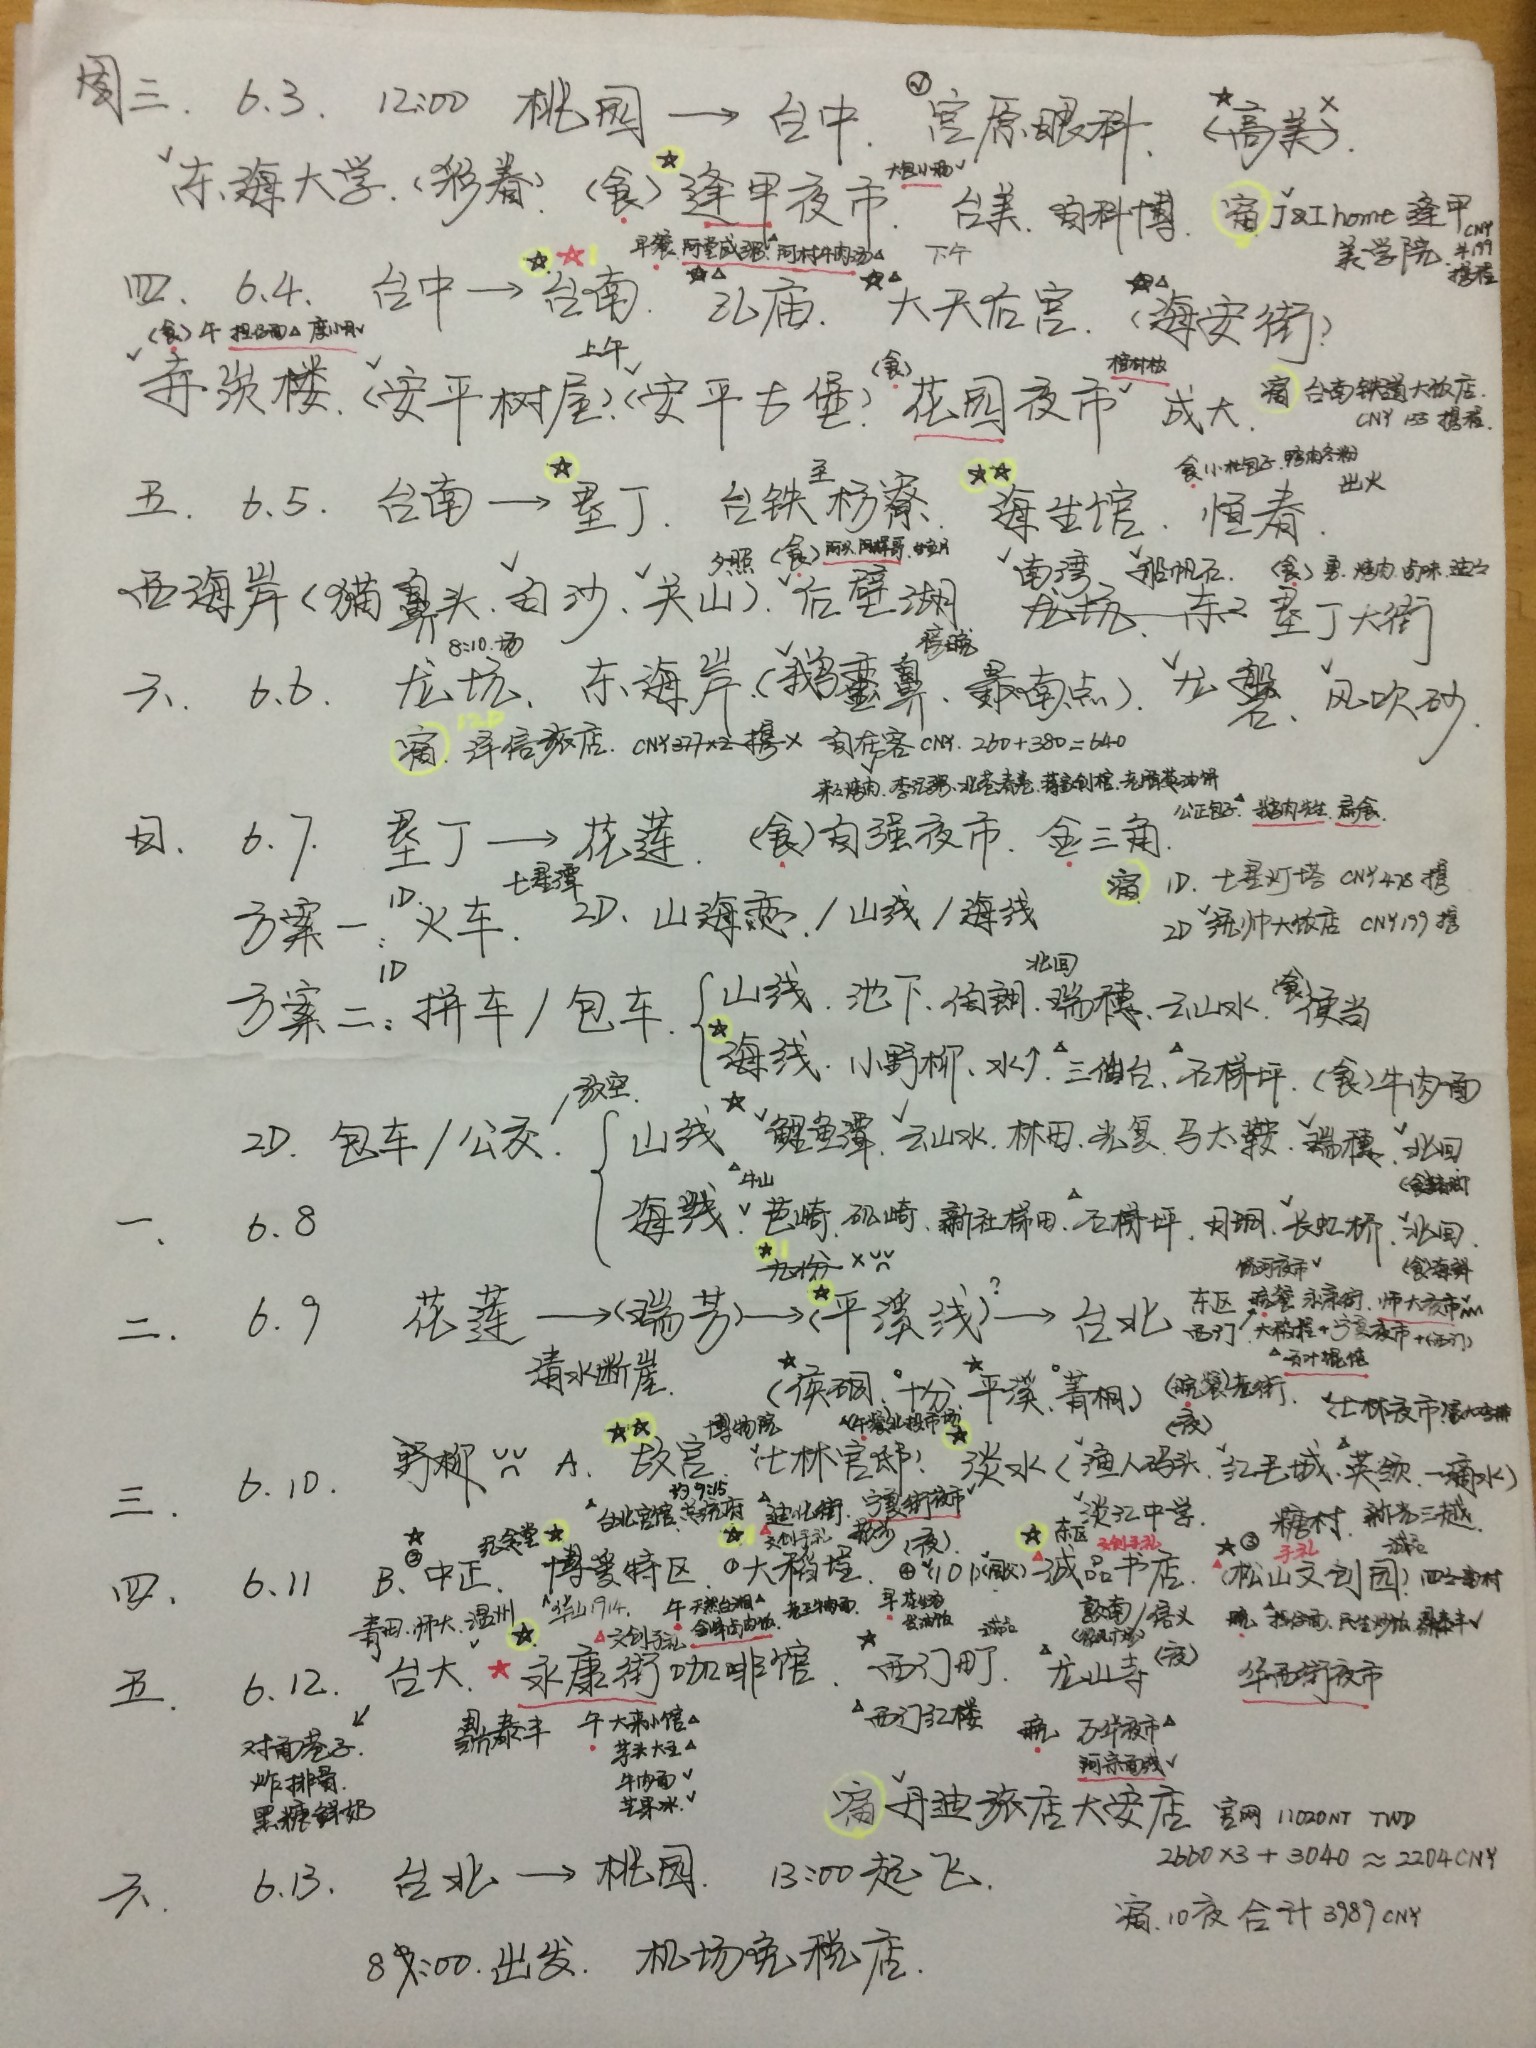 周三. 6.3. 12:00 桃园 → 台中. 宫原眼科. (高美).
大包小肠
东海大学. (彩眷) (食) 逢甲夜市 台美. 自科博. 宿 J&I home 逢甲
美学院. CNY 199 携程
早餐. 阿堂咸粥. 阿村牛肉汤 下午
四. 6.4. 台中 → 台南. 孔庙. 大天后宫. (海安街)
(食) 午 担仔面 度小月
上午 (食) 棺材板
赤崁楼. (安平树屋) (安平古堡) 花园夜市 成大. 宿 台南铁道大饭店.
CNY 155 携程.
食 小杜包子. 鸭肉冬粉 出火
五. 6.5. 台南 → 垦丁. 台铁至枋寮. 海生馆. 恒春.
夕照 (食) 南湾. 船帆石. (食) 烤肉. 卤味.
西海岸 (猫鼻头. 白沙. 关山). 后壁湖 龙坑 垦丁大街
8:10.场
六. 6.6. 龙坑. 东海岸. (鹅銮鼻. 最南点). 龙磐. 风吹砂.
宿. 泽信旅店. CNY 377×2 携 × 自在客 CNY. 260+380=640
公正包子.
日. 6.7. 垦丁 → 花莲. (食) 自强夜市. 金三角.
七星潭 宿 1D. 七星灯塔 CNY 478 携
方案一: 1D. 火车. 2D. 山海恋. / 山线 / 海线
2D 统帅大饭店 CNY 199 携
北回
方案二: 1D 拼车 / 包车. 山线. 池下. 伯朗. 瑞穗. 云山水. (食) 便当
海线. 小野柳. 水↑. 三仙台. 石梯坪. (食) 牛肉面
放空.
2D. 包车 / 公交. 山线 鲤鱼潭. 云山水. 林田. 光复. 马太鞍. 瑞穗. 北回.
牛山
一. 6.8 海线 芭崎. 矶崎. 新社梯田. 石梯坪. 月洞. 长虹桥. 北回.
(食) 海鲜
九份 × 饶河夜市
二. 6.9 花莲 → (瑞芳) → (平溪线)? → 台北 东区 晚餐 永康街. 师大夜市
西门 / 大稻埕 + 宁夏夜市 + (西门)
清水断崖. (侯硐. 十分. 平溪. 菁桐) (晚餐) 老街. (夜) (士林夜市)
博物院 午餐 北投市场
三. 6.10. 野柳 A. 故宫. (士林官邸) 淡水 (渔人码头. 红毛城. 英领. 一滴水)
约9:15
台北宾馆. 总统府 迪化街. 宁夏街夜市 (夜) 淡江中学. 糖村. 新光三越.
四. 6.11 B. 中正. 博爱特区. 大稻埕. 101 诚品书店. (松山文创园) 四四南村
青田. 师大. 温州 华山1914. 文创手礼 午 天然台湘 金峰卤肉饭 敦南 / 信义
五. 6.12. 台大. 永康街咖啡馆. 西门町. 龙山寺 (夜) 华西街夜市
对面巷子. 鼎泰丰 午 大来小馆 西门红楼 晚 万华夜市
炸排骨. 芋头大王 阿宗面线
黑糖鲜奶 牛肉面
芒果冰.
宿 丹迪旅店大安店 官网 11020NT TWD
2660×3+3040≈2204CNY
六. 6.13. 台北 → 桃园. 13:00 起飞.
宿. 10夜合计 3989 CNY
8:00. 出发. 机场免税店.